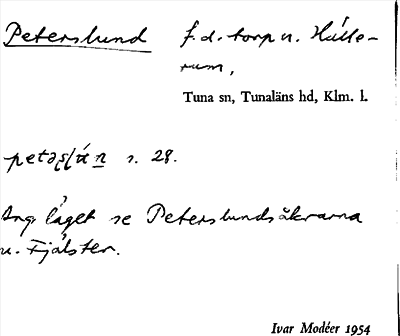 Peterslund f.d. torp u. Hulte-
rum,
Tuna sn, Tunaläns hd, Klm. l.
s. 28.
Ang. läget se Peterslundsåkrarna
u. Fjälster.
Ivar Modéer 1954